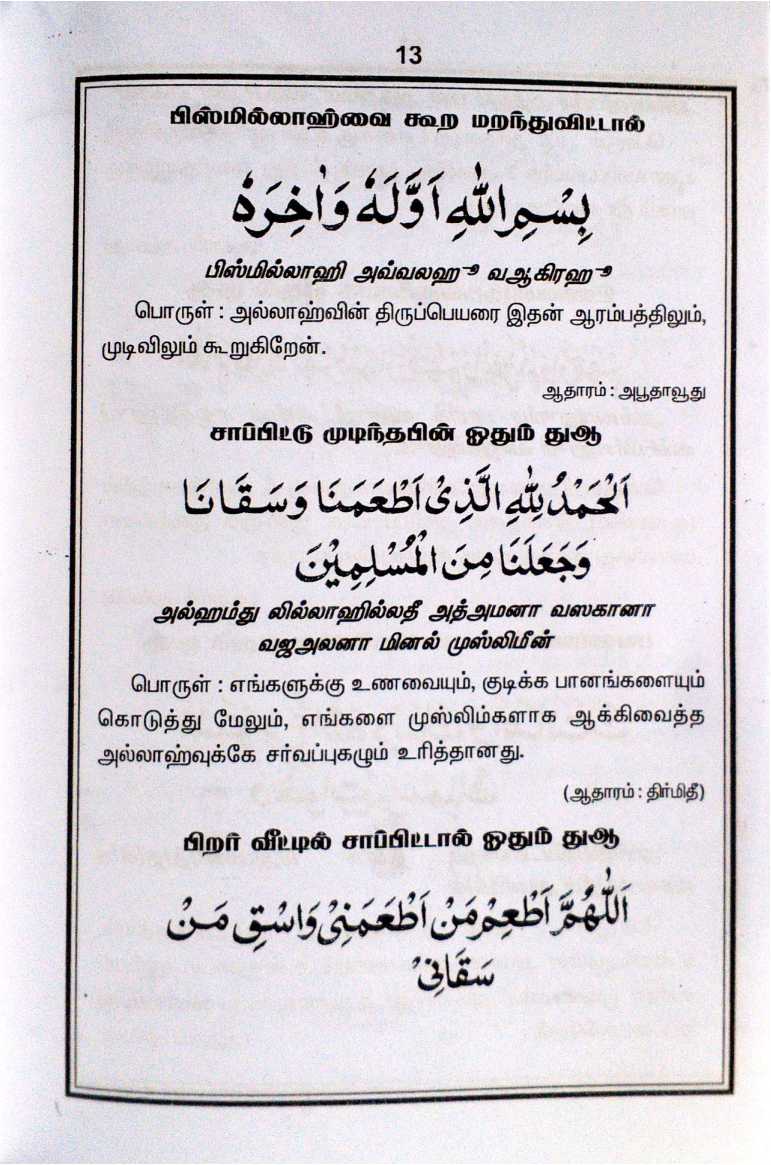 13
பிஸ்மில்லாஹ்வை கூற மறந்துவிட்டால்
بِسْمِ اللهِ اَوَّلَهٗ وَاٰخِرَهٗ
பிஸ்மில்லாஹி அவ்வலஹூ வஆகிரஹூ
பொருள் : அல்லாஹ்வின் திருப்பெயரை இதன் ஆரம்பத்திலும்,
முடிவிலும் கூறுகிறேன்.
ஆதாரம் : அபூதாவூது
சாப்பிட்டு முடிந்தபின் ஓதும் துஆ
اَلْحَمْدُ لِلّٰهِ الَّذِىْ اَطْعَمَنَا وَسَقَانَا
وَجَعَلَنَا مِنَ الْمُسْلِمِيْنَ
அல்ஹம்து லில்லாஹில்லதீ அத்அமனா வஸகானா
வஜஅலனா மினல் முஸ்லிமீன்
பொருள் : எங்களுக்கு உணவையும், குடிக்க பானங்களையும்
கொடுத்து மேலும், எங்களை முஸ்லிம்களாக ஆக்கிவைத்த
அல்லாஹ்வுக்கே சர்வப்புகழும் உரித்தானது.
(ஆதாரம் : திர்மிதீ)
பிறர் வீட்டில் சாப்பிட்டால் ஓதும் துஆ
اَللّٰهُمَّ اَطْعِمْ مَنْ اَطْعَمَنِىْ وَاسْقِ مَنْ
سَقَانِىْ